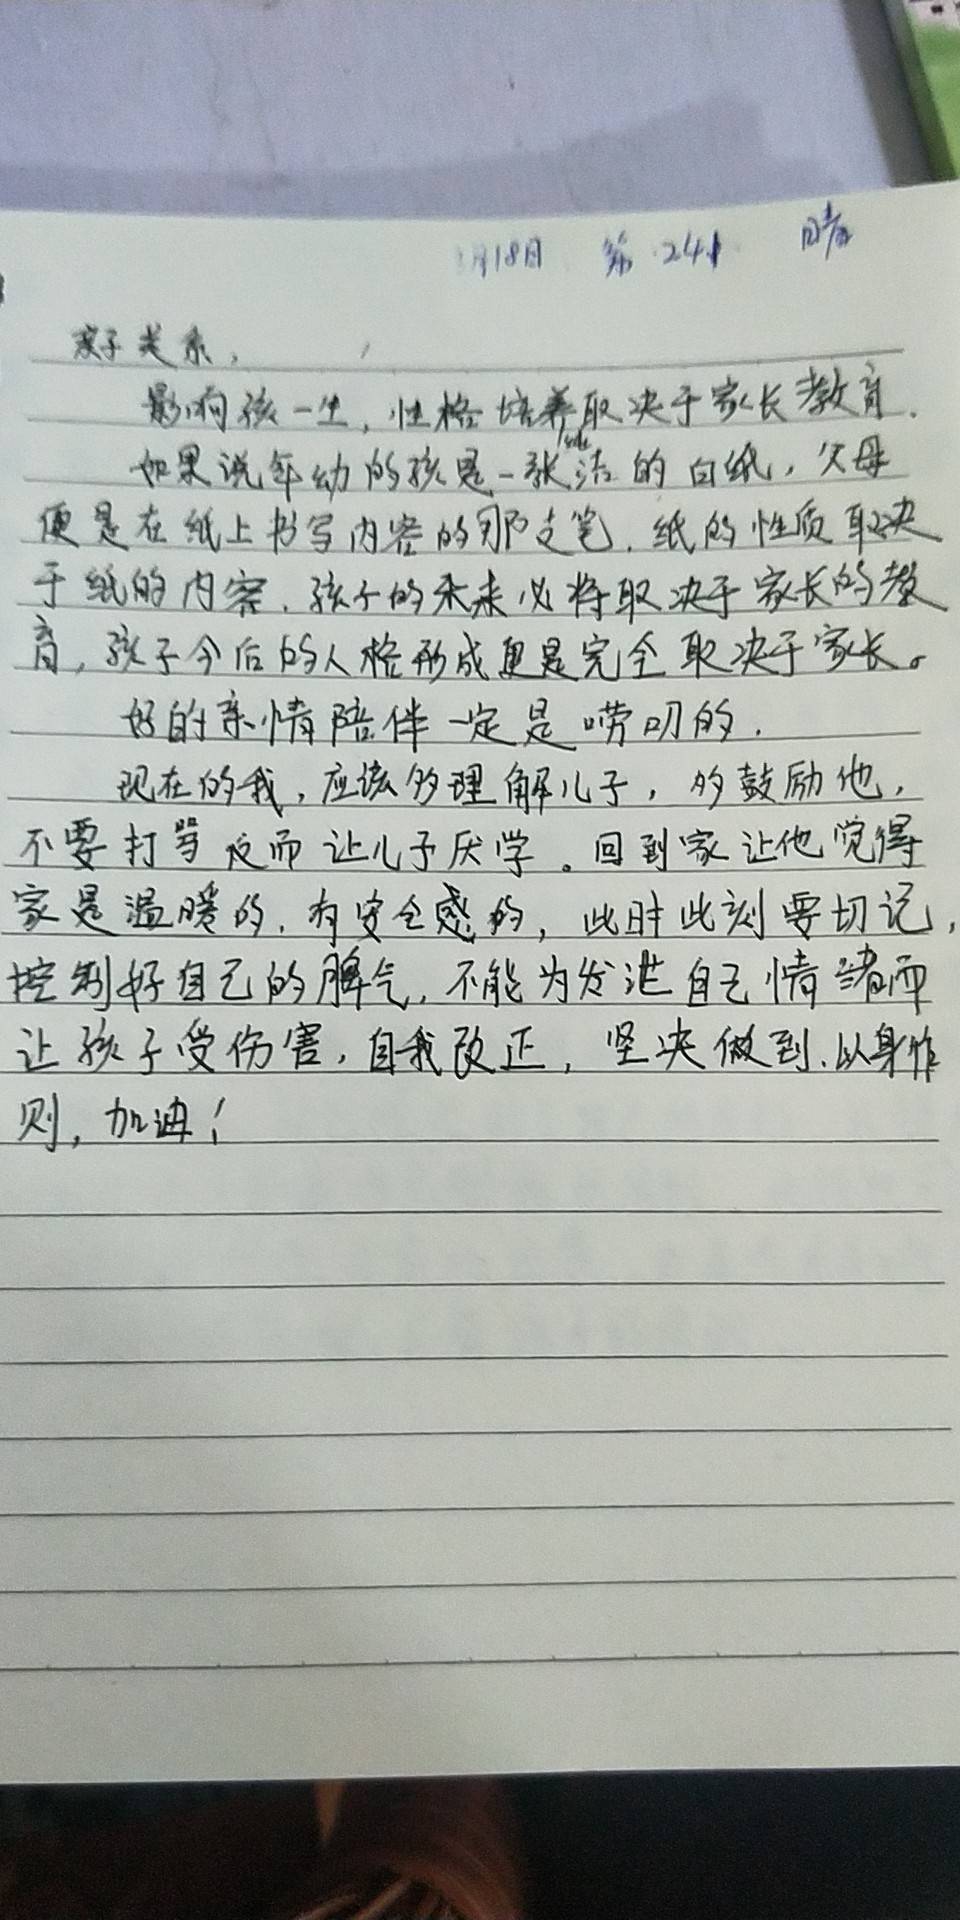 月18日 第24 晴
亲子关系,
影响孩一生,性格培养取决于家长教育.
如果说年幼的孩是一张洁的白纸,父母
便是在纸上书写内容的那支笔.纸的性质取决
于纸的内容.孩子的未来必将取决于家长的教
育,孩子今后的人格形成更是完全取决于家长。
好的亲情陪伴一定是唠叨的.
现在的我,应该多理解儿子,多鼓励他,
不要打骂反而让儿子厌学。回到家让他觉得
家是温暖的.有安全感的,此时此刻要切记,
控制好自己的脾气.不能为发泄自己情绪而
让孩子受伤害,自我改正,坚决做到.以身作
则,加油!